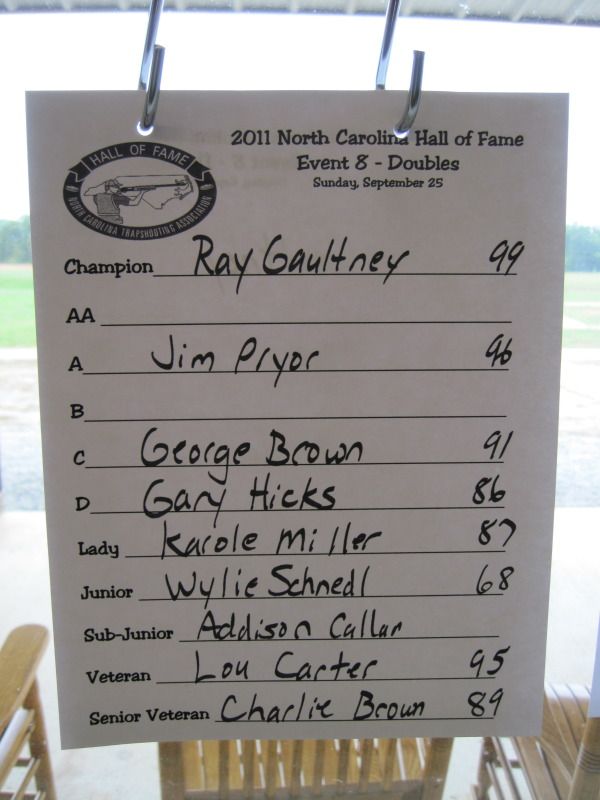 2011 North Carolina Hall of Fame
Event 8 - Doubles
Sunday, September 25
HALL OF FAME
NORTH CAROLINA TRAPSHOOTING ASSOCIATION
Champion Ray Gaultney 99
AA
A Jim Pryor 96
B
C George Brown 91
D Gary Hicks 86
Lady Karole Miller 87
Junior Wylie Schnedl 68
Sub-Junior Addison Callan
Veteran Lou Carter 95
Senior Veteran Charlie Brown 89